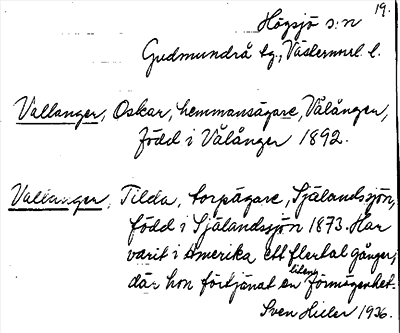 19.
Högsjö s:n
Gudmundrå tg., Västernrl. l.
Vallanger, Oskar, hemmansägare, Vålånger,
född i Vålånger 1892.
Vallanger, Tilda, torpägare, Själandssjön,
född i Själandssjön 1873. Har
varit i Amerika ett flertal gånger,
där hon förtjänat en liten förmögenhet.
Sven Hieler 1936.